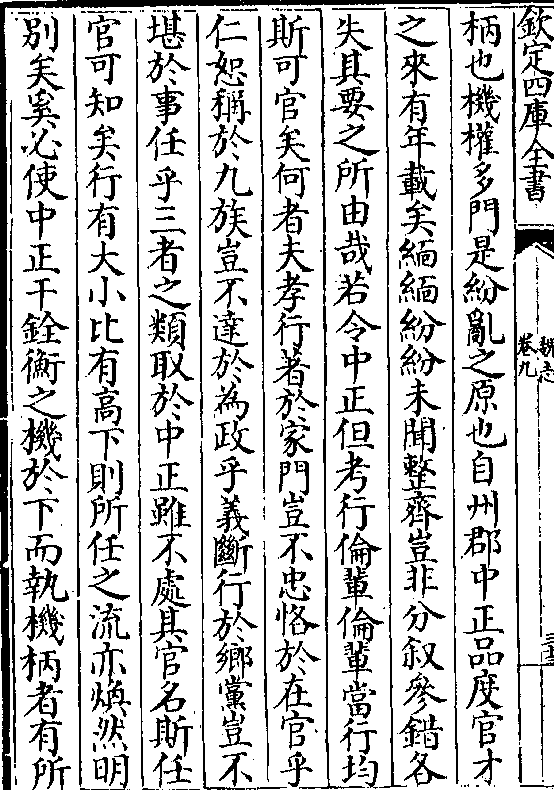 欽定四庫全書
魏志
卷九
柄也機權多門是紛亂之原也自州郡中正品度官才
之來有年載矣緬緬紛紛未聞整齊豈非分叙參錯各
失其要之所由哉若令中正但考行倫輩倫輩當行均
斯可官矣何者夫孝行著於家門豈不忠恪於在官乎
仁恕稱於九族豈不達於為政乎義斷行於鄉黨豈不
堪於事任乎三者之類取於中正雖不處其官名斯任
官可知矣行有大小比有高下則所任之流亦煥然明
别矣奚必使中正干銓衡之機於下而執機柄者有所